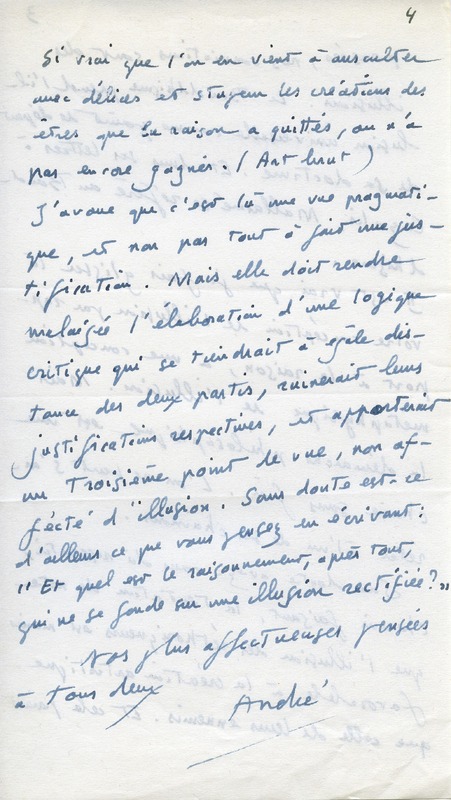 4
Si vrai que l'on en vient à ausculter
avec délices et stupeur les créations des
êtres que la raison a quittés, ou n'a
pas encore gagnés. (Art brut)
J'avoue que c'est là une vue pragmati-
que, et non pas tout à fait une jus-
tification. Mais elle doit rendre
malaisée l'élaboration d'une logique
critique qui se tiendrait à égale dis-
tance des deux partis, ruinerait leurs
justifications respectives, et apporterait
un troisième point de vue, non af-
fecté d'illusion. Sans doute est-ce
d'ailleurs ce que vous pensez en écrivant :
" Et quel est le raisonnement, après tout,
qui ne se fonde sur une illusion rectifiée? "
Nos plus affectueuses pensées
à tous deux
André